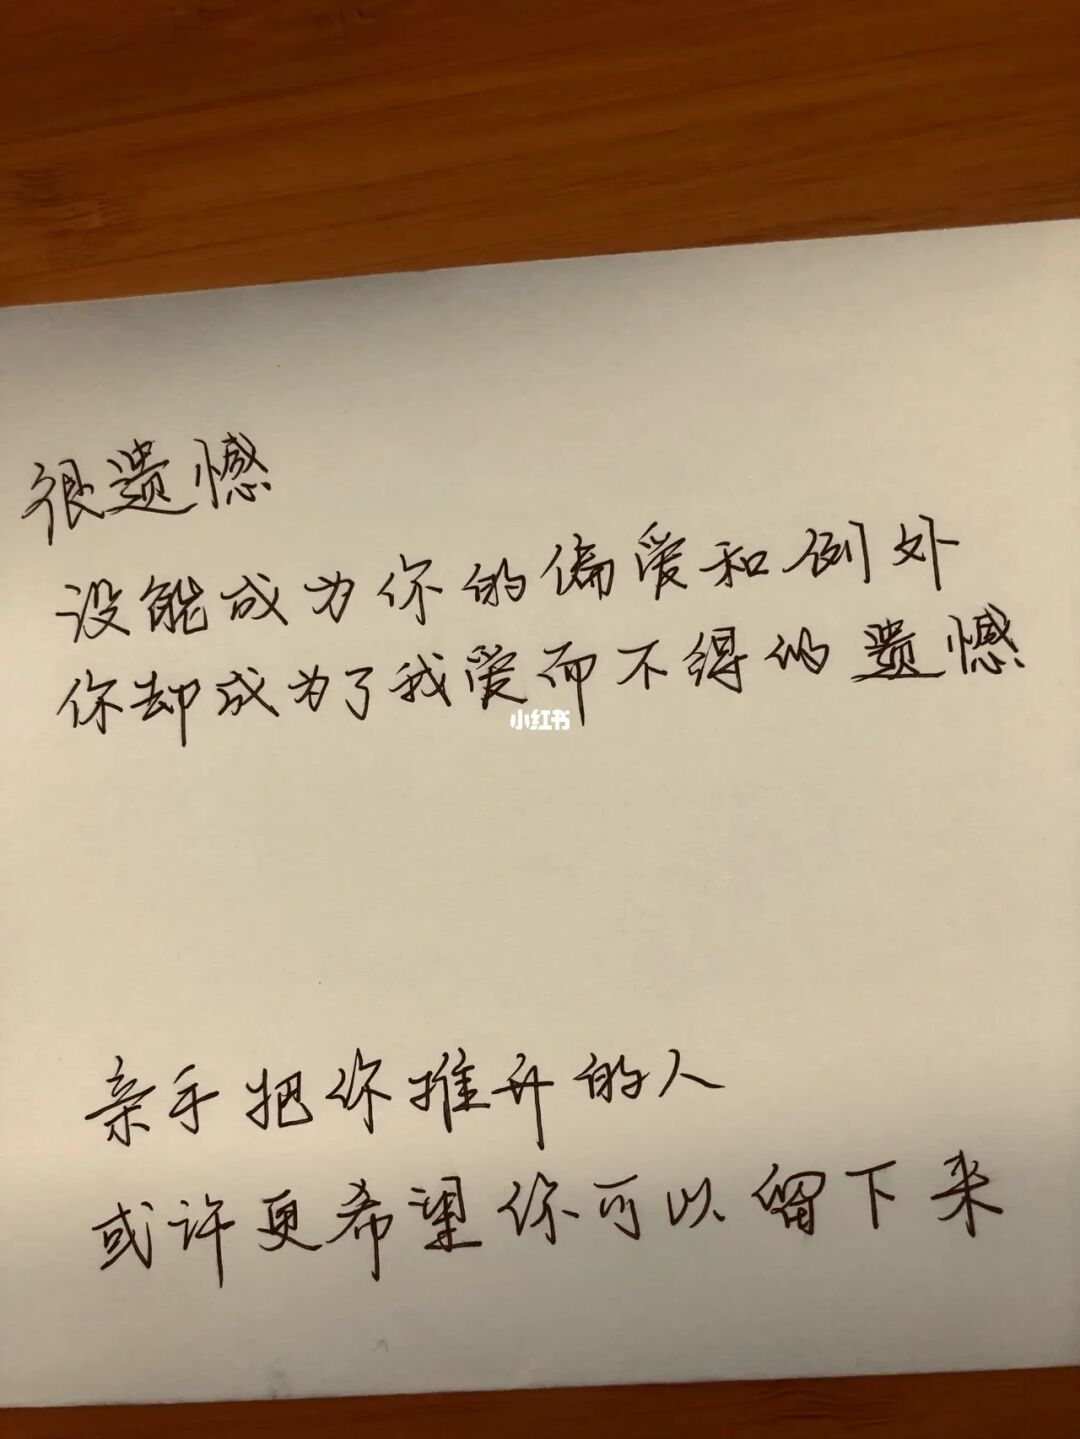 很遗憾
没能成为你的偏爱和例外
你却成为了我爱而不得的遗憾
小红书
亲手把你推开的人
或许更希望你可以留下来